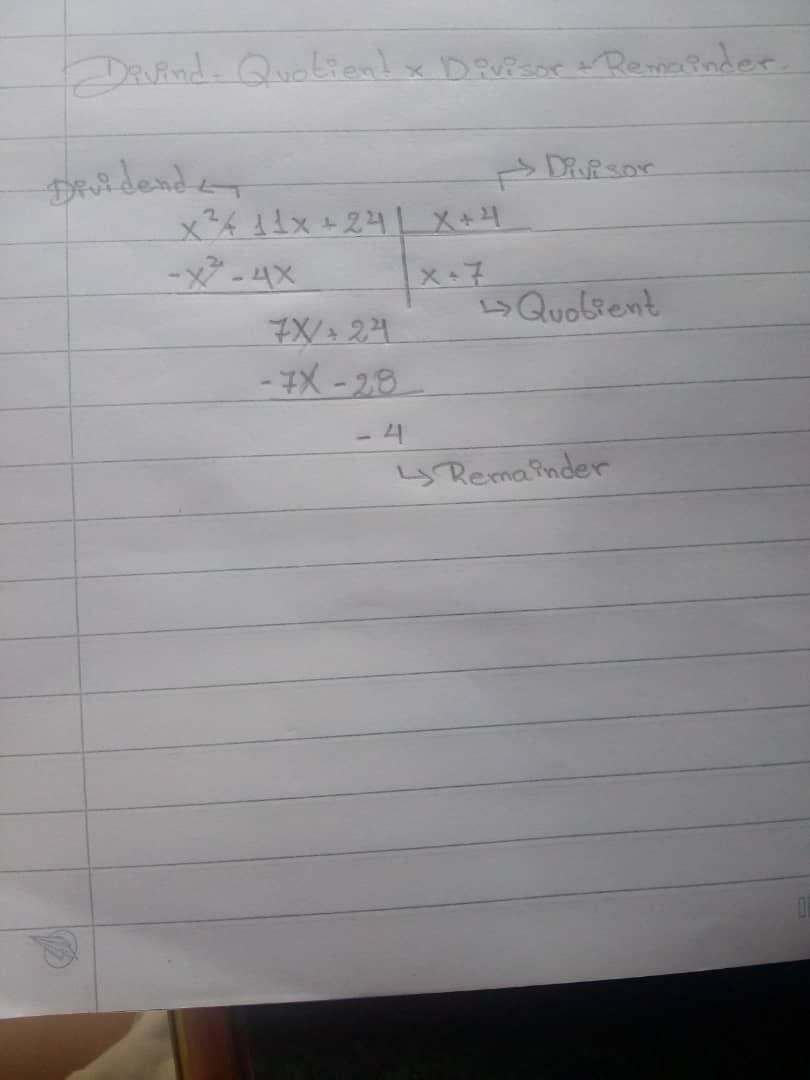 Divind = Quotient x Divisor + Remainder.
Dividend ↵ ↱ Divisor
x² + 11x + 24 | x + 4
-x² - 4x | x + 7
7x + 24 ↳ Quotient
-7x - 28
- 4
↳ Remainder